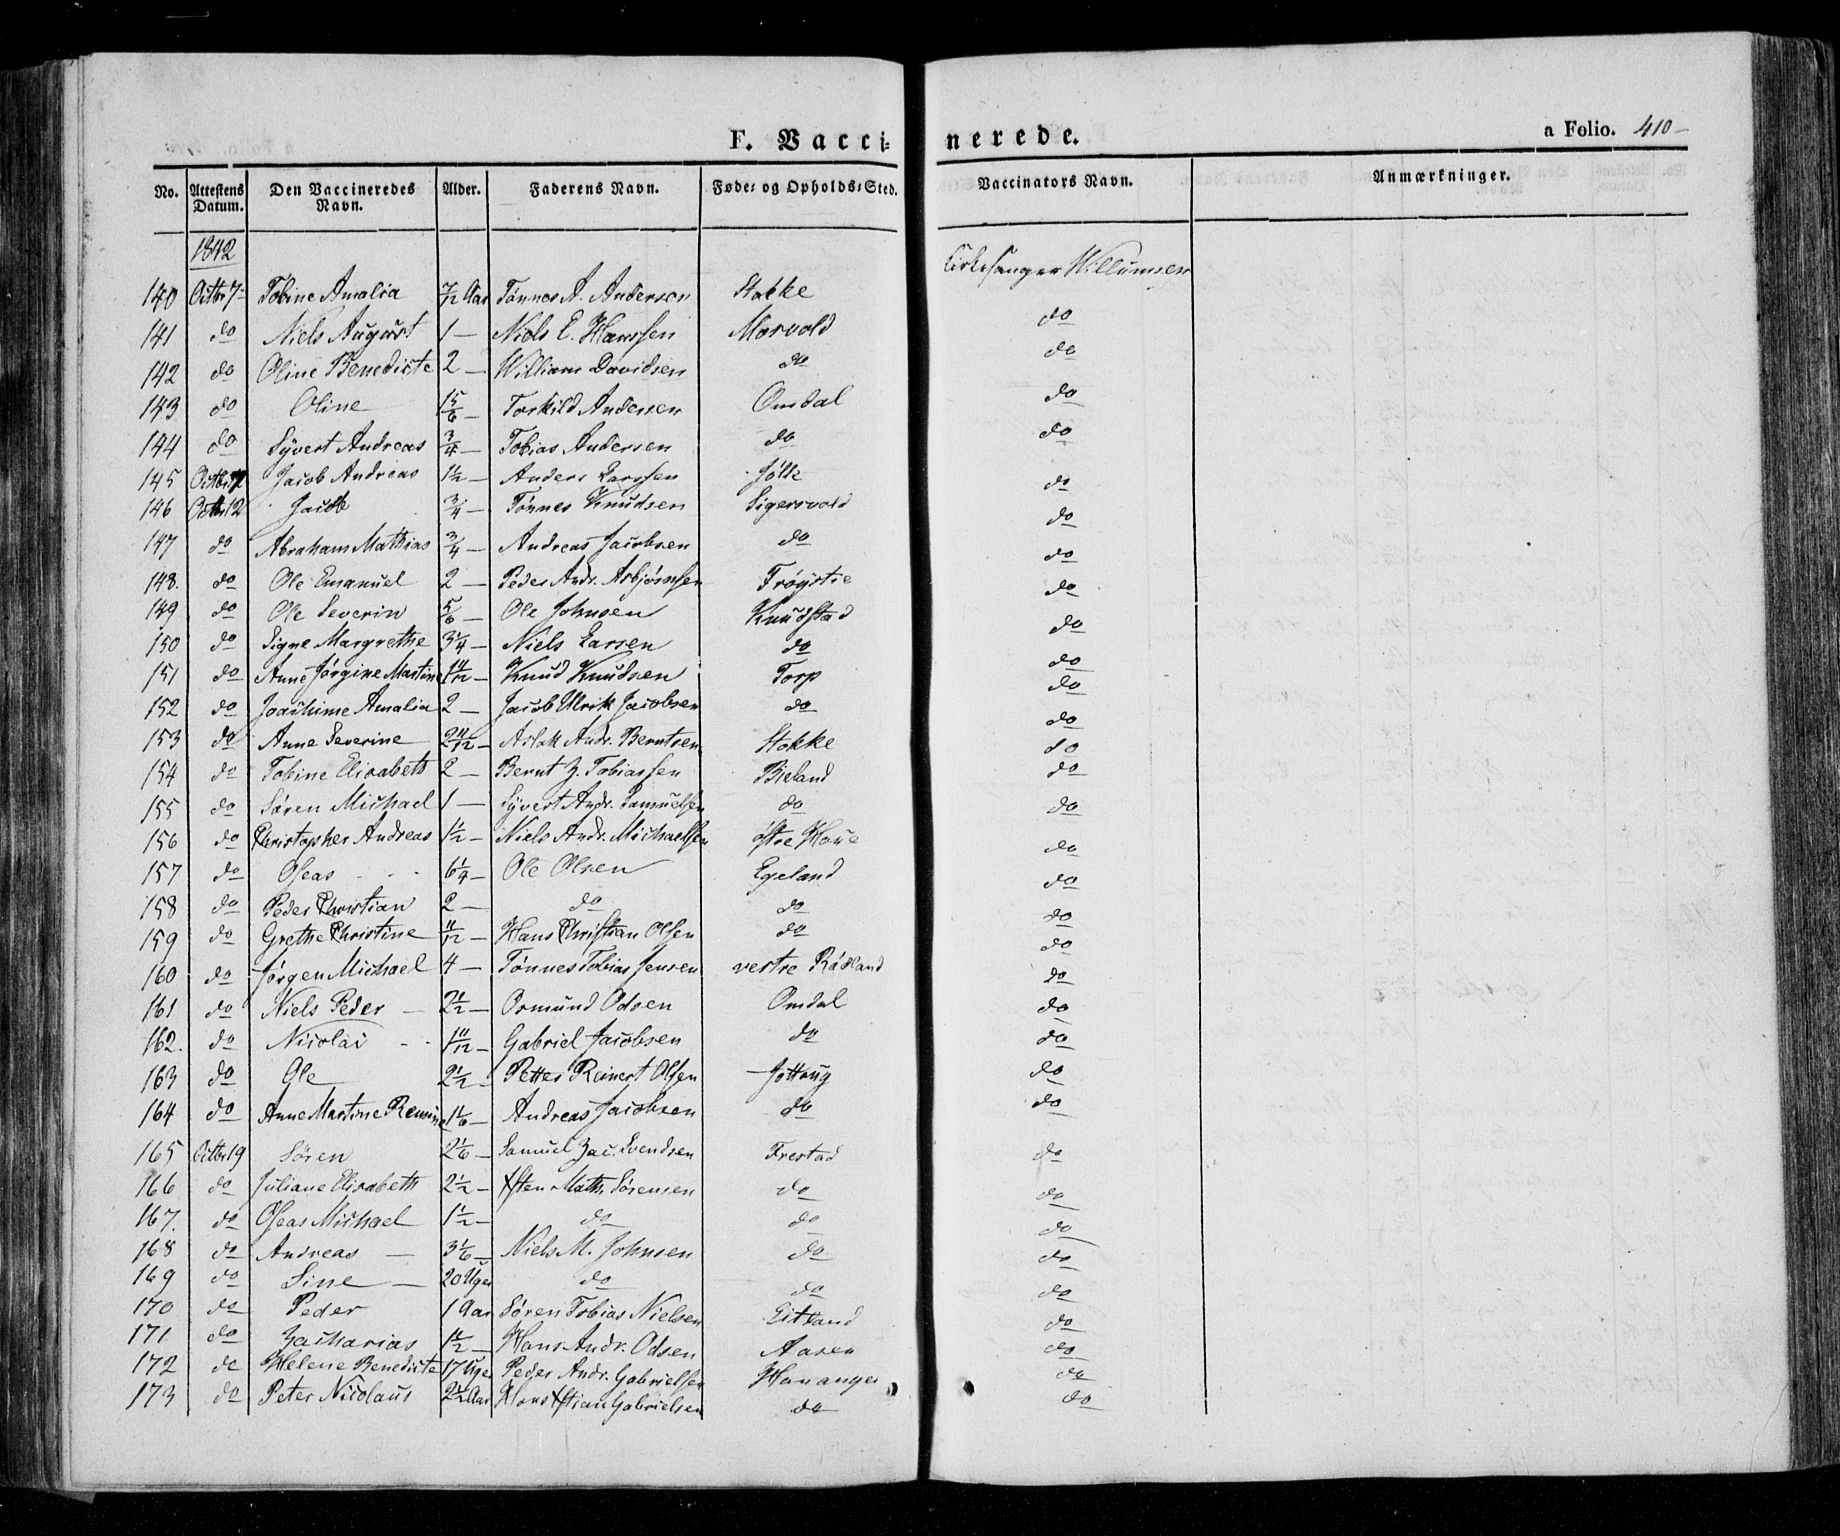 F. Vacci-nerede.
a Folio. 410-
No. Attestens Datum. Den Vaccineredes Navn. Alder. Faderens Navn. Føde- og Opholds-Sted. Vaccinators Navn. Anmærkninger.
1842
140 Octbr 7- Tobine Amalia 7/12 Aar Tønnes A. Andersen Stokke Kirkesanger Willumsen
141 do Niels August 1 — Niels E. Hanssen Morvold do
142 do Oline Benedicte 2 — William Davidsen do do
143 do Oline 15/6 — Torkild Andersen Omdal do
144 do Syvert Andreas 3/4 — Tobias Andersen do do
145 Octbr 12 Jacob Andreas 1 1/2 — Anders Larssen Jølle do
146 Octbr 12 Jacob 3/4 — Tønnes Knudsen Sigersvold do
147 do Abraham Mathias 3/4 — Andreas Jacobsen do do
148. do Ole Emanuel 2 — Peder Andr. Asbjørnsen Frøÿstie do
149 do Ole Severin 5/6 — Ole Johnsen Knudstad do
150 do Signe Margrethe 3 1/4 — Niels Larsen do do
151 do Anne Jørgine Martine 1 11/12 — Knud Knudsen Torp do
152 do Joachime Amalia 2 — Jacob Ulrik Jacobsen do do
153 do Anne Severine 2 11/12 — Aslak Andr. Berntsen Stokke do
154 do Tobine Elisabeth 2 — Bernt Z. Tobiassen Bieland do
155 do Søren Michael 1 — Syvert Andr. Samuelsen do do
156 do Christopher Andreas 1 1/2 — Niels Andr. Michaelsen østre Haue do
157 do Oseas 6 1/4 — Ole Olsen Egeland do
158 do Peder Christian 2 — do do do
159 do Grethe Christine 11/12 — Hans Christian Olsen do do
160 do Jørgen Michael 4 — Tønnes Tobias Jensen vestre Rødland do
161 do Niels Peder — 2 1/2 — Ormund Odsen Omdal do
162. do Nicolai 1 11/12 — Gabriel Jacobsen do do
163 do Ole 2 1/2 — Petter Reinert Olsen Jottoug do
164 do Anne Martine 1 1/6 — Andreas Jacobsen do do
165 Octbr 19 Søren 2 1/6 — Samuel Zac. Svendsen Frestad do
166 do Juliane Elisabeth 2 1/2 — Sten Math. Sørensen do do
167. do Oseas Michael 1 1/2 — do do do
168 do Andreas — 3 1/6 — Niels M. Johnsen do do
169 do Sine — 20 Uger do do do
170 do Peder 1 Aar Søren Tobias Nielsen Eitland do
171 do Zacharias 1 1/2 — Hans Andr. Odsen Aasen do
172 do Helene Benedicte 17 Uger Peder Andr. Gabrielsen Hananger do
173 do Peter Nicolaus 2 1/2 Aar Hans Xstian Gabrielsen do do